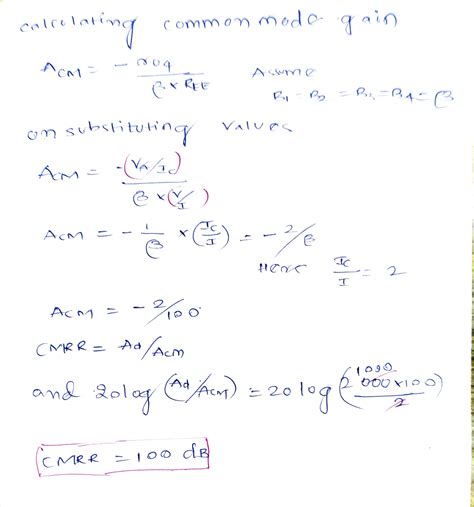 calculating common mode gain
ACM = - r04 / β × REE Assume
β1 = β2 = β3 = β4 = β
on substituting values
ACM = -(VA/IC) / β × (V/I)
ACM = - 1/β × (IC/I) = - 2/β
Here IC/I = 2
ACM = - 2/100
CMRR = Ad/ACM
and 20log (Ad/ACM) = 20log (2000×100 / 2) 1000
CMRR = 100 dB